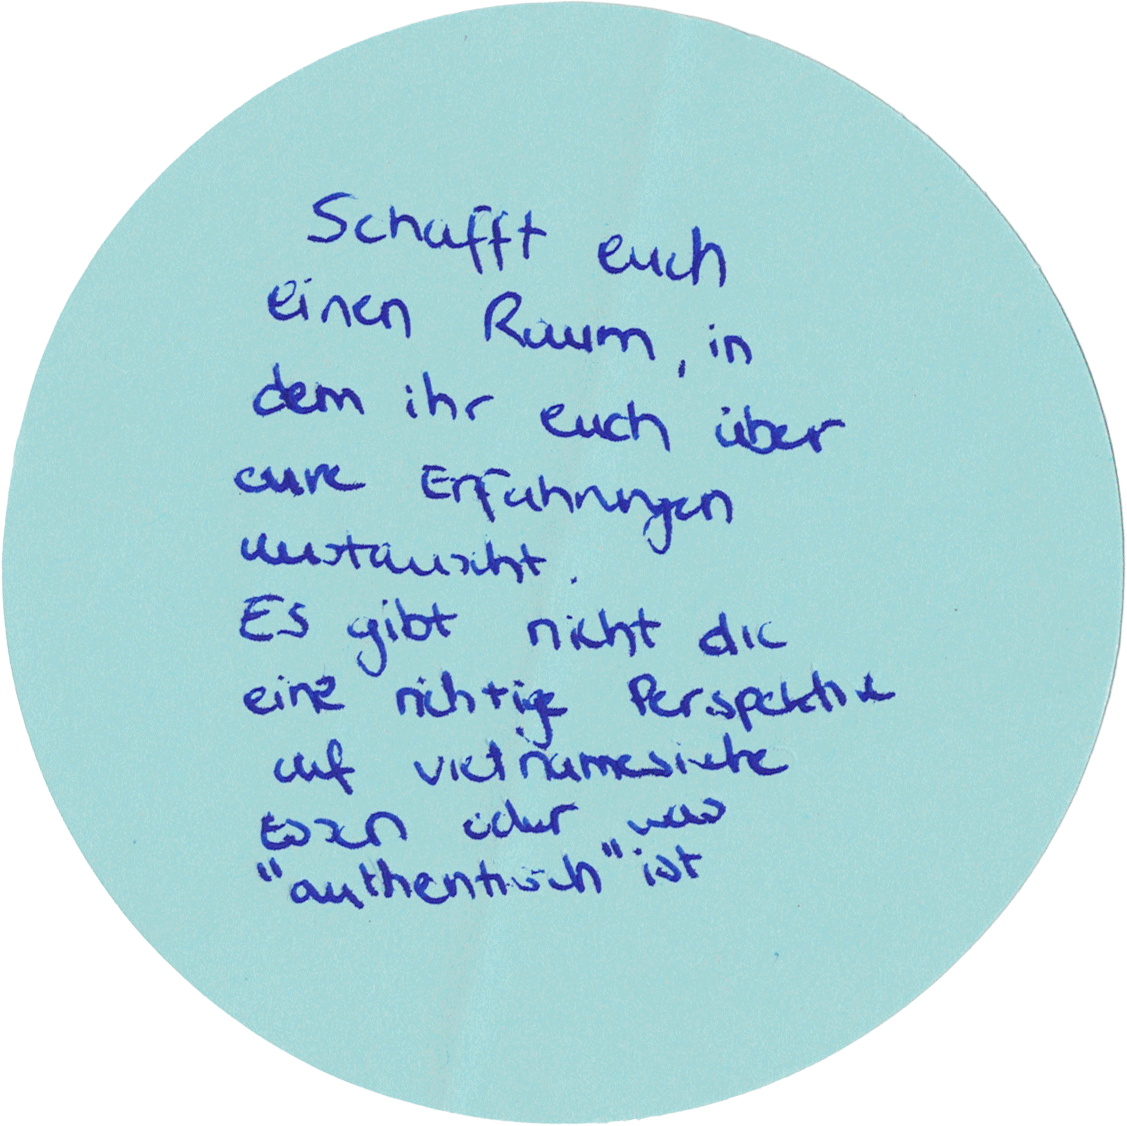 Schafft euch
einen Raum, in
dem ihr euch über
eure Erfahrungen
austauscht.
Es gibt nicht die
eine richtige Perspektive
auf vietnamesische
Essen oder was
"authentisch" ist